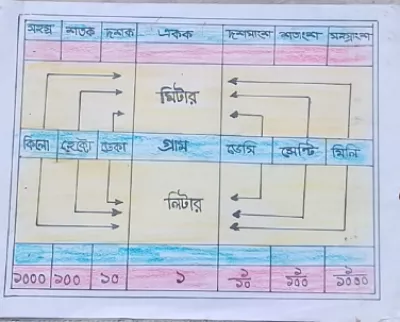 সহস্র শতক দশক একক দশমাংশ শতাংশ সহস্রাংশ
মিটার
কিলো হেক্টো ডেকা গ্রাম ডেসি সেন্টি মিলি
লিটার
১০০০ ১০০ ১০ ১ ১/১০ ১/১০০ ১/১০০০